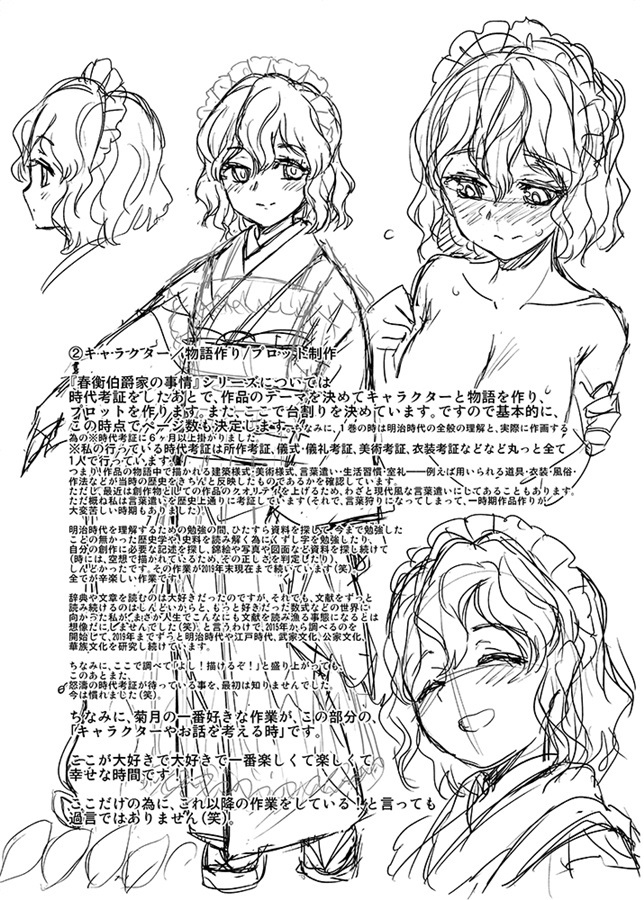 ②キャラクター／物語作り/プロット制作
『春衡伯爵家の事情』シリーズについては
時代考証をしたあとで、作品のテーマを決めてキャラクターと物語を作り、
プロットを作ります。また、ここで台割りを決めています。ですので基本的に、
この時点でページ数も決定します。ちなみに、1巻の時は明治時代の全般の理解と、実際に作画する
為の※時代考証に6ヶ月以上掛かりました。
※私の行っている時代考証は所作考証、儀式・儀礼考証、美術考証、衣装考証などなど丸っと全て
1人で行っています。
つまり！作品の物語中で描かれる建築様式・美術様式、言葉遣い・生活習慣・室礼――例えば用いられる道具・衣装・風俗・
作法などが当時の歴史をきちんと反映したものであるかを確認しています。
ただし、最近は創作物としての作品のクオリティを上げるため、わざと現代風な言葉遣いにしてあることもあります。
ただ概ね私は言葉遣いを歴史上通りに考証しています（それで、言葉狩りになってしまって、一時期作品作りが
大変苦しい時期もありました）
明治時代を理解するための勉強の間、ひたすら資料を探して、今まで勉強した
ことの無かった歴史学や、史料を読み解く為にくずし字を勉強したり、
自分の創作に必要な記述を探し、錦絵や写真や図面など資料を探し続けて
（時には、空想で描かれているため、その正しさを判定したり）、
しんどかったです。その作業が2019年末現在まで続いています（笑）
全てが辛楽しい作業です！
辞典や文章を読むのは大好きだったのですが、それでも、文献をずっと
読み続けるのはしんどいからと、もっと好きだった数式などの世界に
向かった私が、まさか人生でこんなにも文献を読み漁る事態になるとは
想像だにしませんでした（笑）。と言うわけで、2015年から調べるのを
開始して、2019年までずっと明治時代や江戸時代、武家文化、公家文化、
華族文化を研究し続けています。
ちなみに、ここで調べて「よし！描けるぞ！」と盛り上がっても、
このあとまた、
怒濤の時代考証が待っている事を、最初は知りませんでした。
今は慣れました（笑）
ちなみに、菊月の一番好きな作業が、この部分の、
「キャラクターやお話を考える時」です。
ここが大好きで大好きで一番楽しくて楽しくて
幸せな時間です！！
ここだけの為に、これ以降の作業をしている！と言っても
過言ではありません（笑）。